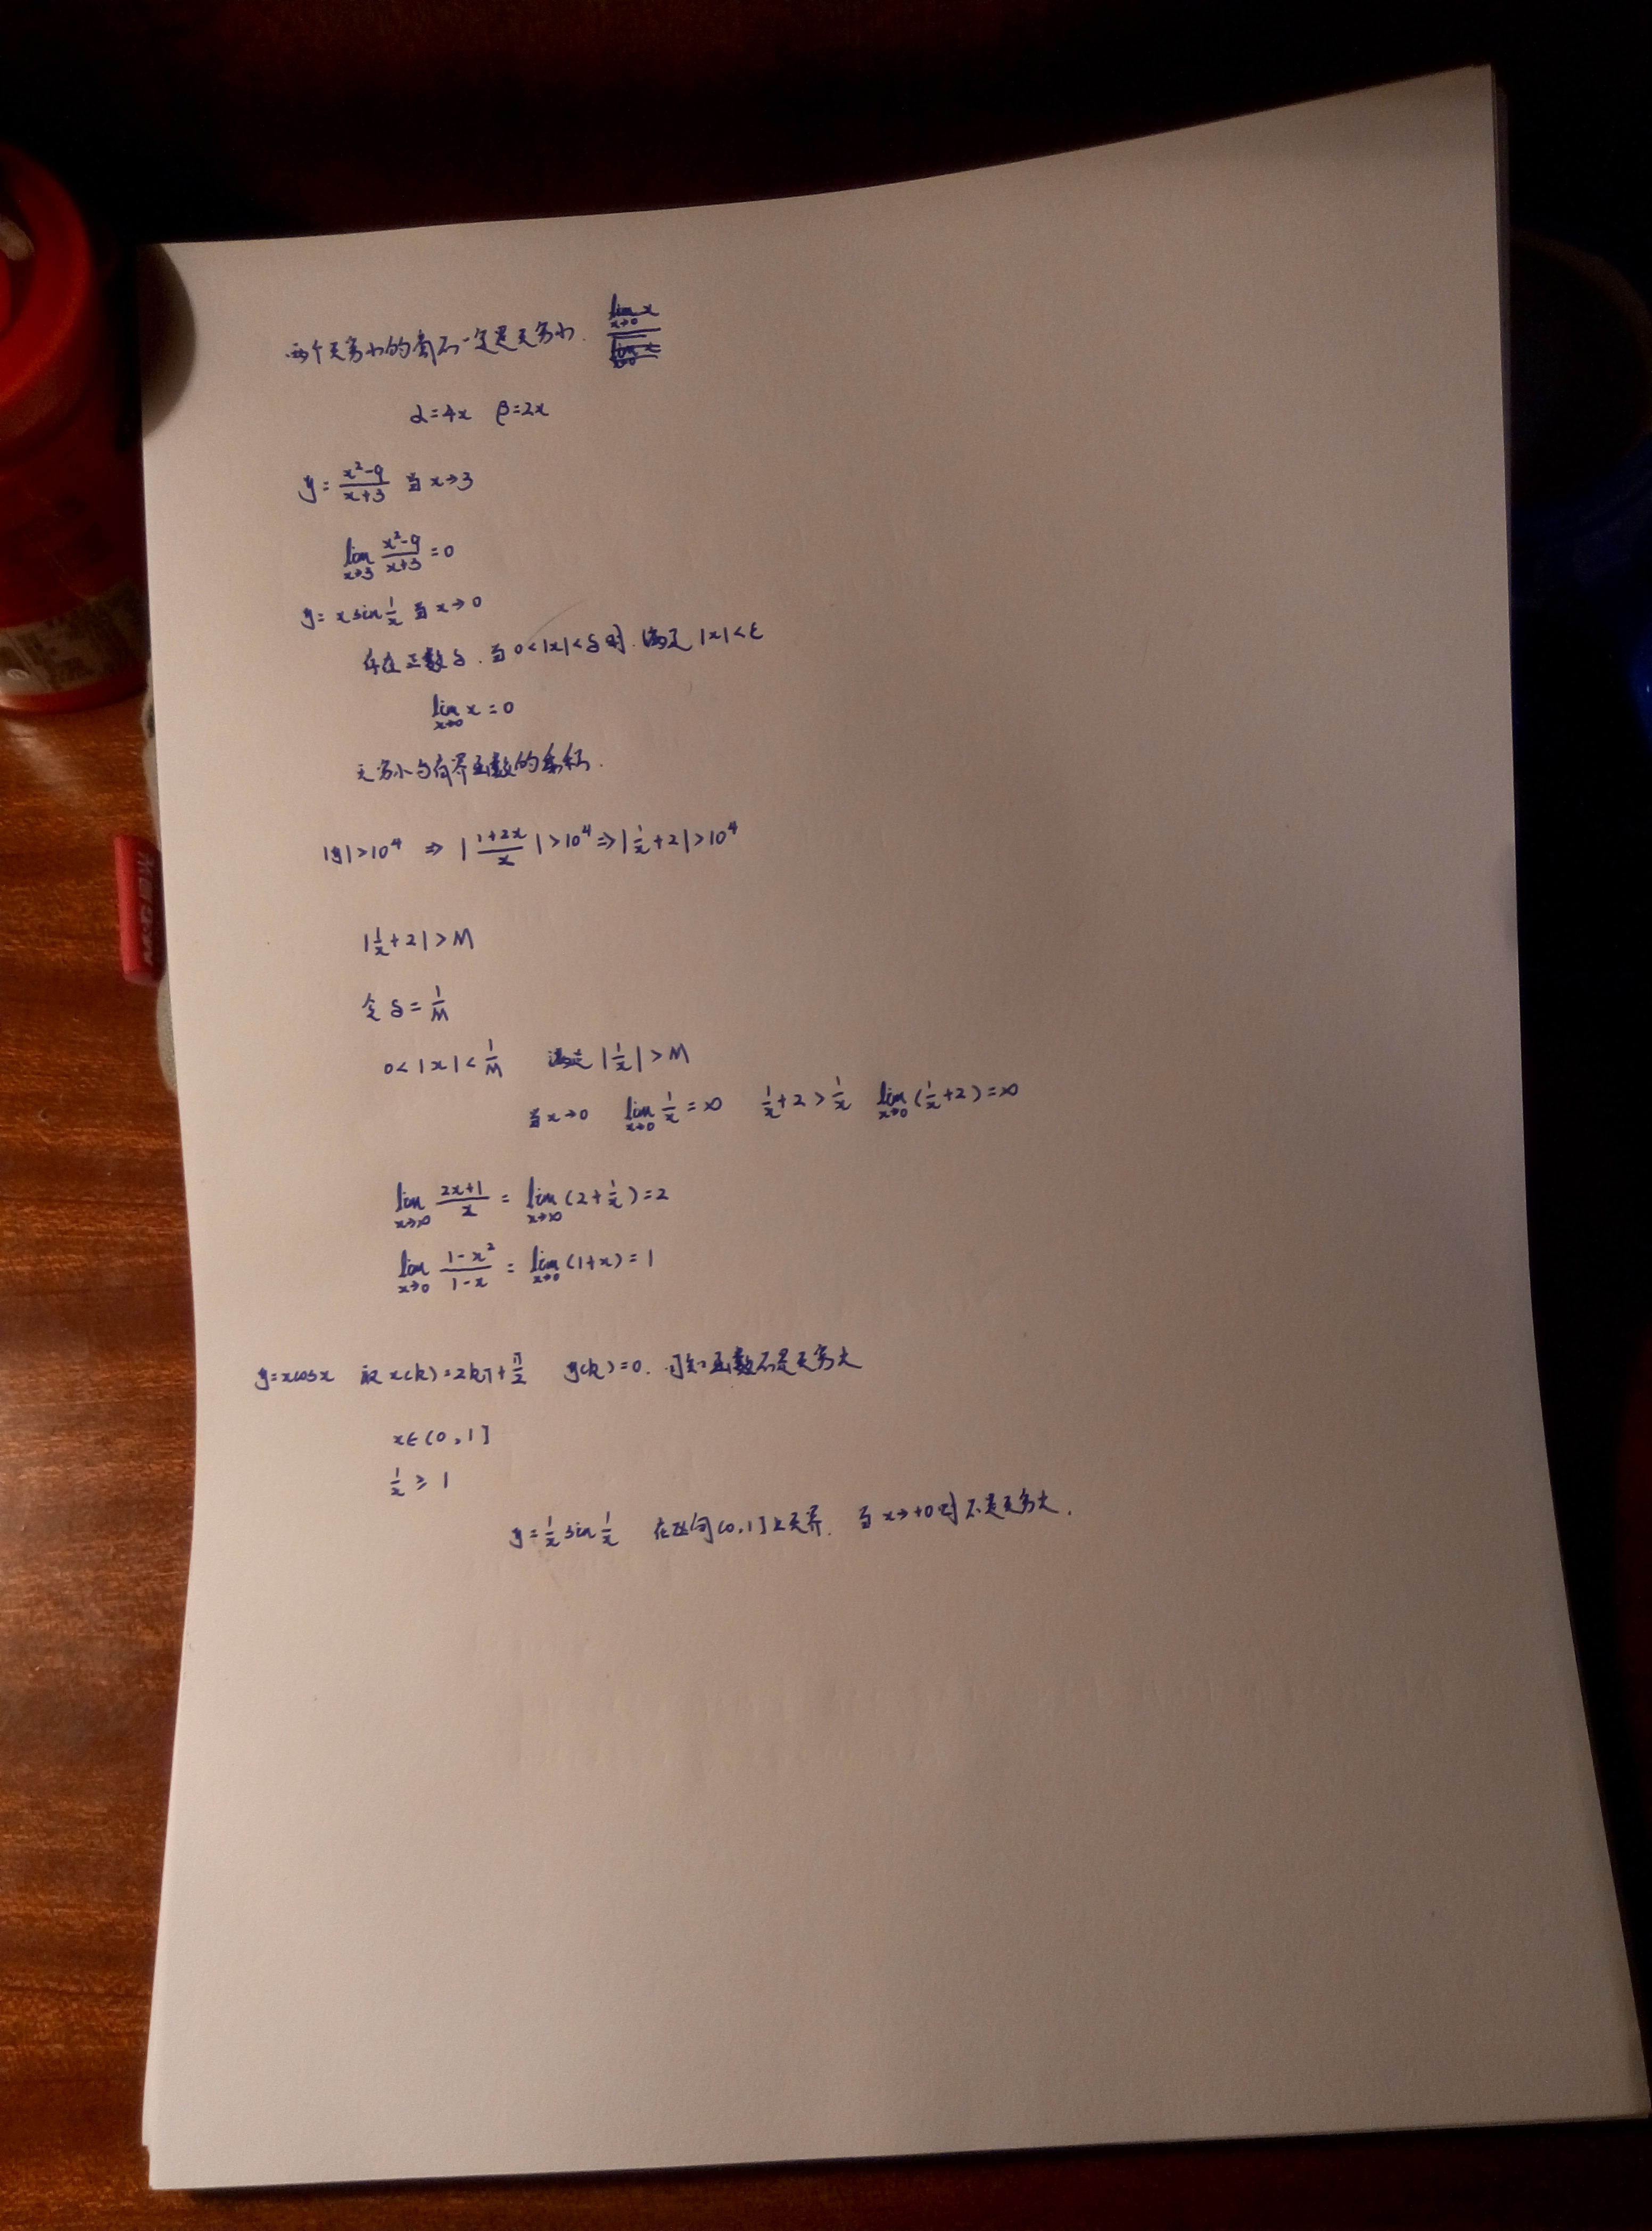 两个无穷小的商不一定是无穷小. lim x→0 x / lim x→0 x
α=4x β=2x
y=(x²-9)/(x+3) 当x→3
lim x→3 (x²-9)/(x+3) =0
y=x sin 1/x 当x→0
存在正数δ.当0<|x|<δ时.满足|x|<ε
lim x→0 x=0
无穷小与有界函数的乘积.
|y|>10⁴ ⇒ |(1+2x)/x|>10⁴⇒|1/x+2|>10⁴
|1/x+2|>M
令δ=1/M
0<|x|<1/M 满足|1/x|>M
当x→0 lim x→0 1/x=∞ 1/x+2>1/x lim x→0 (1/x+2)=∞
lim x→∞ (2x+1)/x = lim x→∞ (2+1/x)=2
lim x→0 (1-x²)/(1-x) = lim x→0 (1+x)=1
y=xcosx 取x(k)=2kπ+π/2 y(k)=0. 可知函数不是无穷大
x∈(0,1]
1/x ≥ 1
y=1/x sin 1/x 在区间(0,1]上无界. 当x→+0时不是无穷大.
M&G